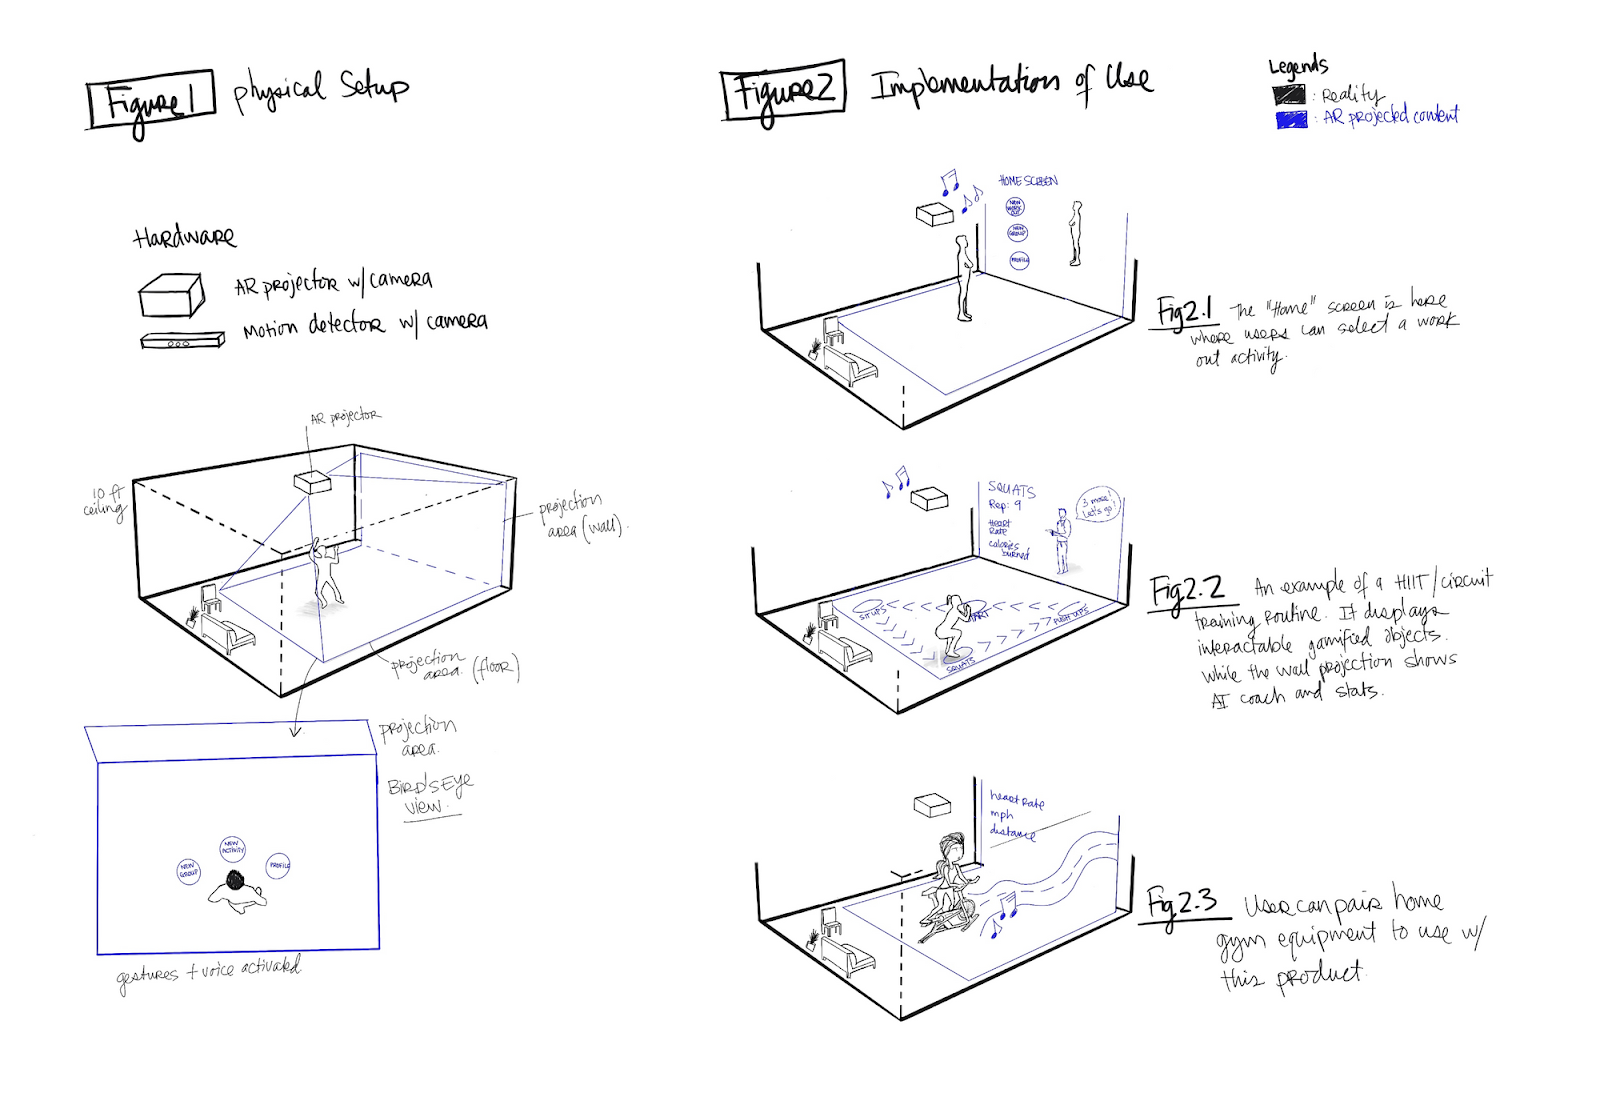 Figure 1
Physical Setup
Hardware
AR projector w/camera
Motion detector w/ camera
AR projector
10 ft
ceiling
projection
area (wall).
projection
area. (floor)
projection
area.
BIRD'S EYE
VIEW.
NEW
ACTIVITY
NEW
GROUP
PROFILE
gestures + voice activated
Figure 2
Implementation of Use
Legends
: Reality
: AR projected content
HOME SCREEN
NEW
WORK
OUT
NEW
GROUP
PROFILE
Fig 2.1 The "Home" screen is here
where users can select a work
out activity.
SQUATS
Rep: 9
Heart
Rate
calories
burned
3 more!
Let's go!
SIT UPS
START
PUSH UPS
SQUATS
Fig 2.2 An example of a HIIT/circuit
training routine. It displays
interactable gamified objects.
while the wall projection shows
AI coach and stats.
heart rate
mph
distance
Fig 2.3 User can pair home
gym equipment to use w/
this product.